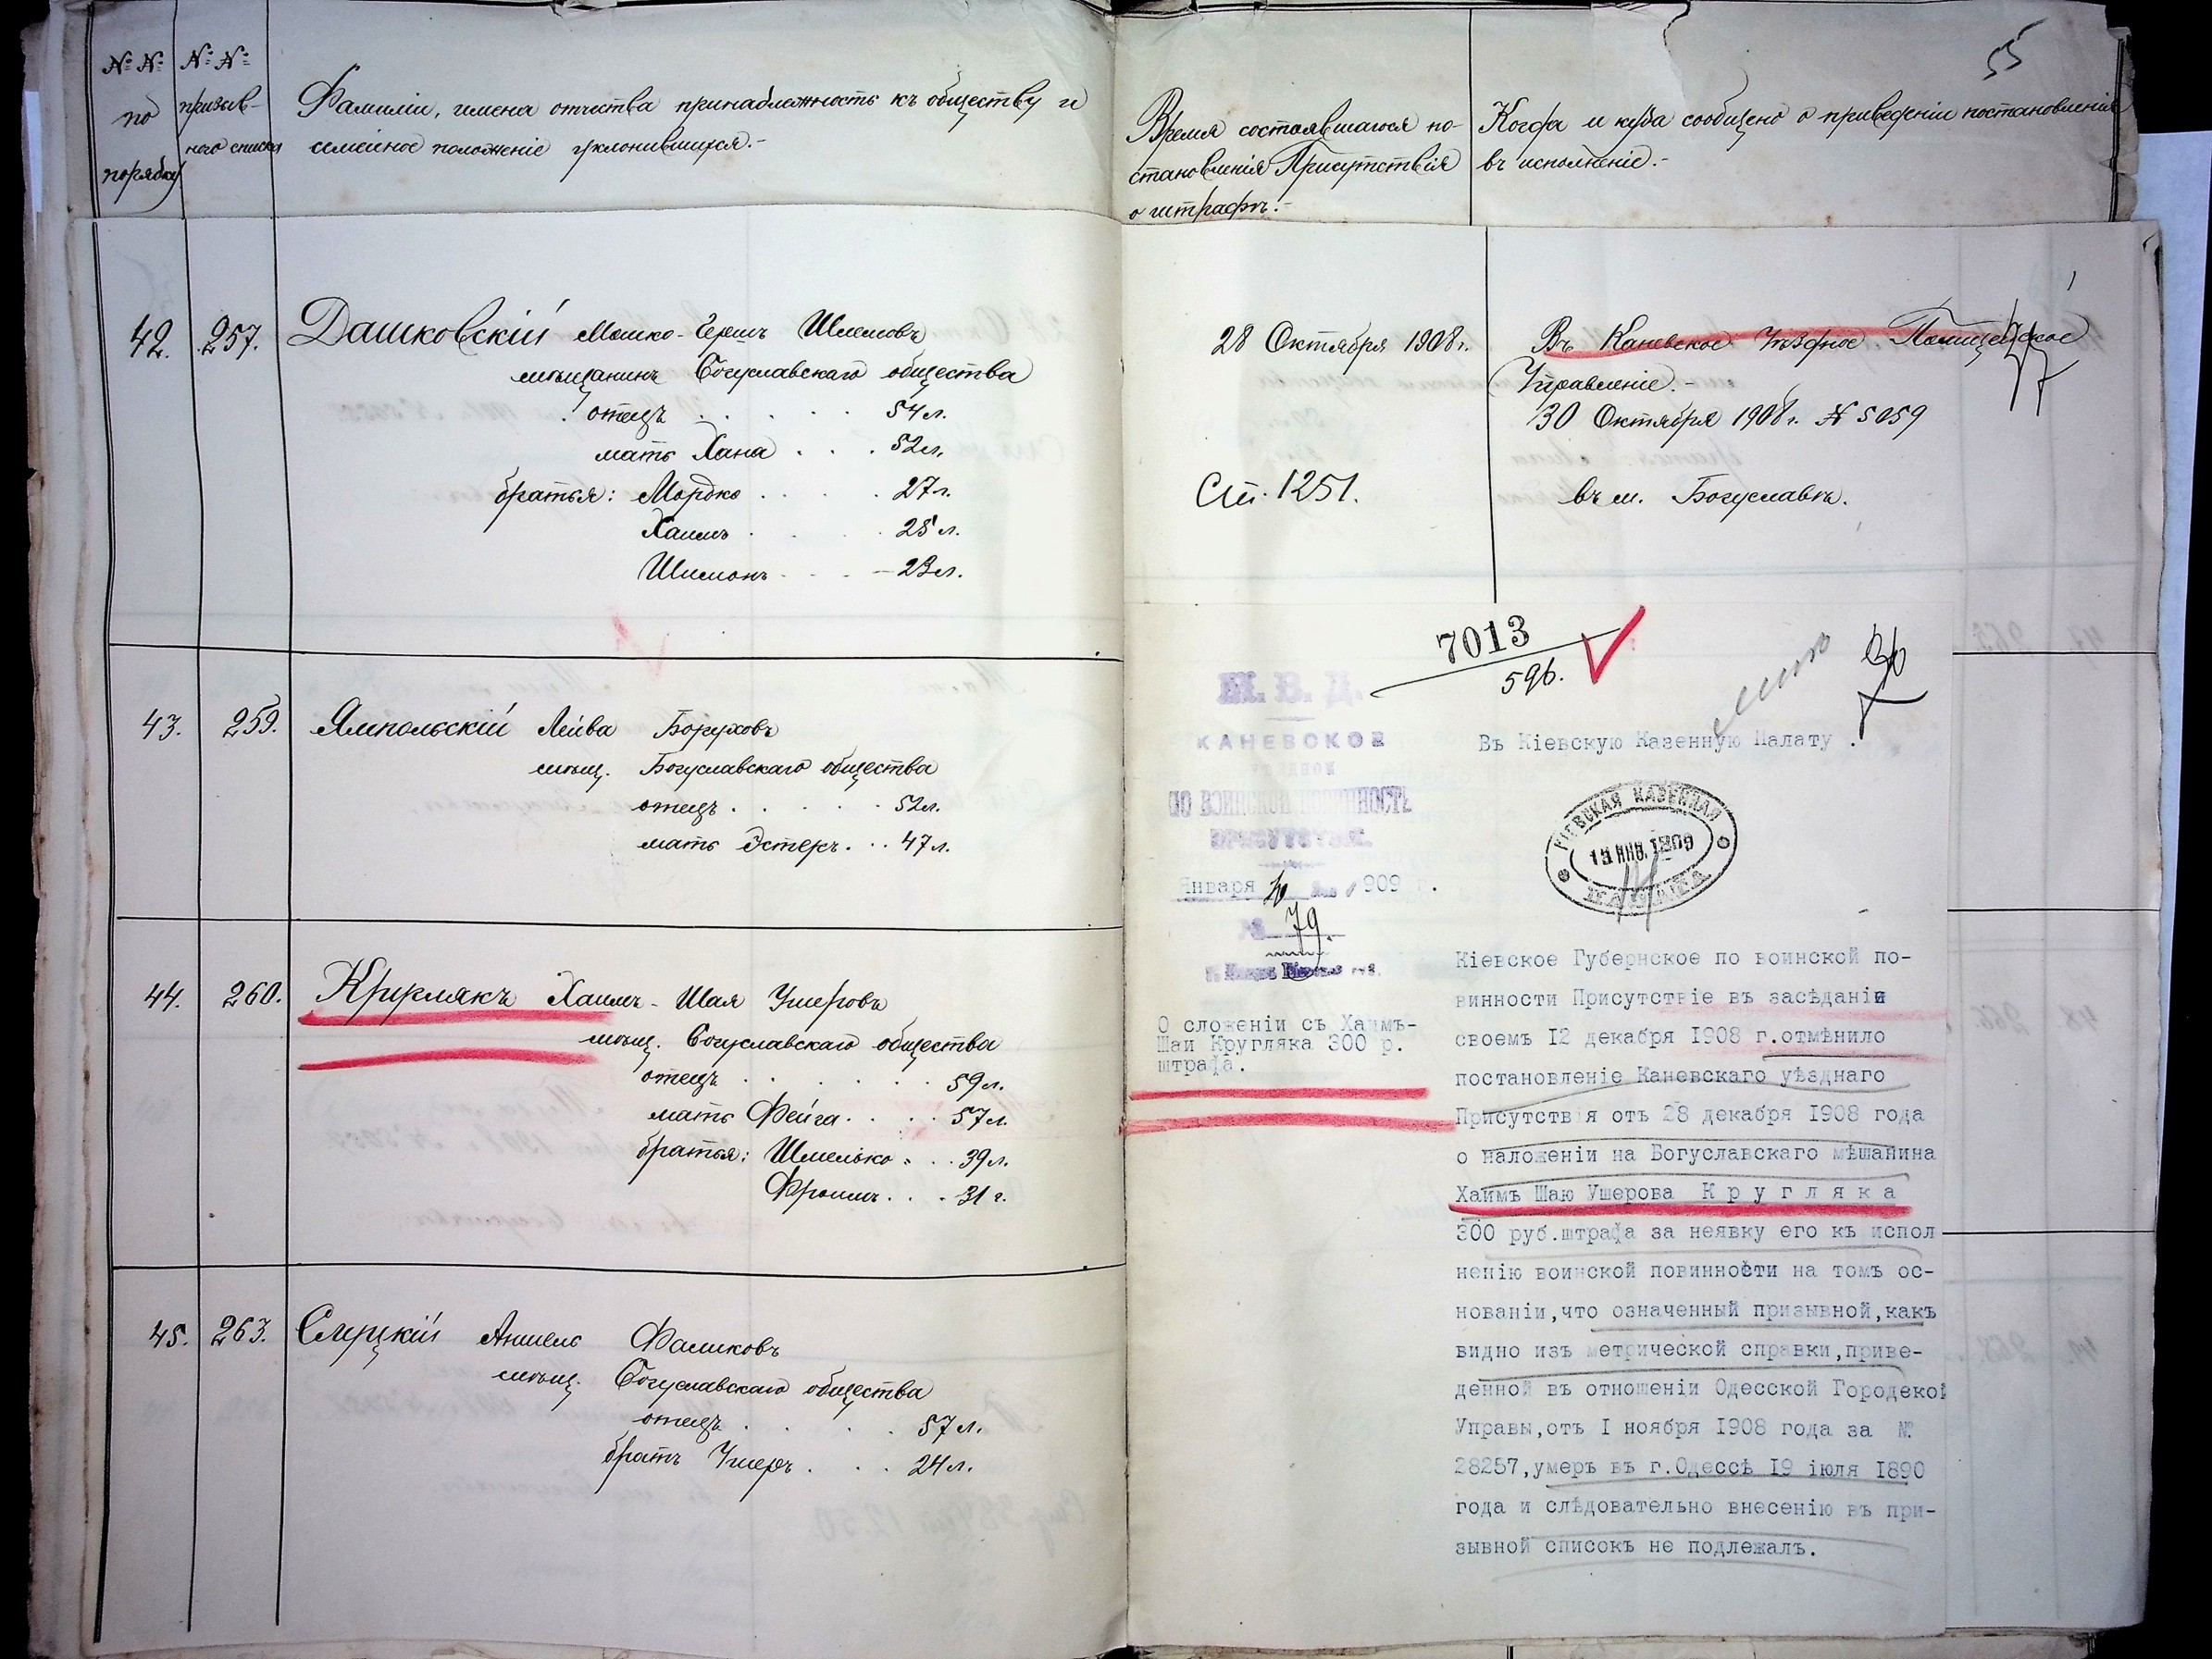 № № по порядку
№ № призыв-
наго списка
Фамиліи, имена отчества принадлежность къ обществу и
семейное положеніе уклонившихся.-
Время состоявшагося по-
становленія Присутствія
о штрафѣ.-
Когда и куда сообщено о приведеніи постановленія
въ исполненіе.-
55
42. 257. Дашковскій Мошко-Гершъ Шлемовъ
мѣщанинъ Богуславскаго общества
отецъ . . . . . 54 л.
мать Хана . . . 52 л.
братья: Мордко . . . . 27 л.
Хаимъ . . . . 25 л.
Шимонъ . . . 23 л.
28 Октября 1908 г.
Ст. 1251.
Въ Каневское Уѣздное Полицейское
Управленіе.-
30 Октября 1908 г. № 5059
въ м. Богуславѣ.
43. 259. Ямпольскій Лейва Боруховъ
мѣщ. Богуславскаго общества
отецъ . . . . . 52 л.
мать Эстеръ . . . 47 л.
44. 260. Круглякъ Хаимъ-Шая Ушеровъ
мѣщ. Богуславскаго общества
отецъ . . . . . . 59 л.
мать Фейга . . . . 57 л.
братья: Шмелько . . . 39 л.
Фроимъ . . . 31 г.
45. 263. Слуцкій Аншель Фалиховъ
мѣщ. Богуславскаго общества
отецъ . . . . 57 л.
братъ Ушеръ . . . 24 л.
7013
596.
М. В. Д.
КАНЕВСКОЕ
УѢЗДНОЕ
ПО ВОИНСКОЙ ПОВИННОСТИ
ПРИСУТСТВІЕ.
Января 10 дня 1909 г.
№ 79.
О сложеніи съ Хаимъ-
Шаи Кругляка 300 р.
штрафа.
Въ Кіевскую Казенную Палату .
КІЕВСКАЯ КАЗЕННАЯ
13 ЯНВ. 1909
ПАЛАТА
Кіевское Губернское по воинской по-
винности Присутствіе въ засѣданіи
своемъ I2 декабря I908 г.отмѣнило
постановленіе Каневскаго уѣзднаго
Присутствія отъ 28 декабря I908 года
о наложеніи на Богуславскаго мѣщанина
Хаимъ Шаю Ушерова К р у г л я к а
300 руб.штрафа за неявку его къ испол
ненію воинской повинности на томъ ос-
нованіи,что означенный призывной,какъ
видно изъ метрической справки,приве-
денной въ отношеніи Одесской Городской
Управы,отъ I ноября I908 года за №
28257,умеръ въ г.Одессѣ I9 іюля I890
года и слѣдовательно внесенію въ при-
зывной списокъ не подлежалъ.